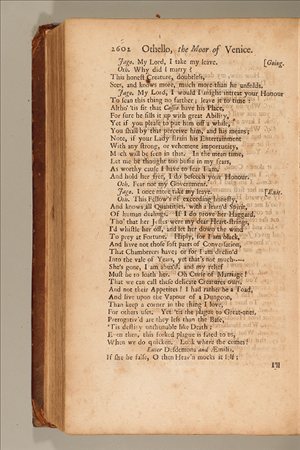 2602 Othello, the Moor of Venice.
Jago. My Lord, I take my leave. [Going.
Oth. Why did I marry?
This honest Creature, doubtless,
Sees, and knows more, much more than he unfolds.
Jago. My Lord, I would I might intreat your Honour
To scan this thing no further; leave it to time:
Altho' 'tis fit that Cassio have his Place,
For sure he fills it up with great Ability,
Yet if you please to put him off a while,
You shall by that perceive him, and his means;
Note, if your Lady strain his Entertainment
With any strong, or vehement importunity,
Much will be seen in that. In the mean time,
Let me be thought too busie in my fears,
As worthy cause I have to fear I am,
And hold her free, I do beseech your Honour.
Oth. Fear not my Government.
Jago. I once more take my leave. [Exit.
Oth. This Fellow's of exceeding honesty,
And knows all Quantities, with a learn'd Spirit,
Of human dealings. If I do prove her Haggard,
Tho' that her Jesses were my dear Heart-strings,
I'd whistle her off, and let her down the wind
To prey at Fortune. Haply, for I am black,
And have not those soft parts of Conversation,
That Chamberers have; or for I am declin'd
Into the vale of Years, yet that's not much——
She's gone, I am abus'd, and my relief
Must be to loath her. Oh Curse of Marriage!
That we can call these delicate Creatures ours,
And not their Appetites! I had rather be a Toad,
And live upon the Vapour of a Dungeon,
Than keep a corner in the thing I love,
For others use. Yet 'tis the plague to Great-ones,
Prerogativ'd are they less than the Base,
'Tis destiny unshunable like Death;
Even then, this forked plague is fated to us,
When we do quicken. Look where she comes!
Enter Desdemona and Æmilia.
If she be false, O then Heav'n mocks it self;
I'll